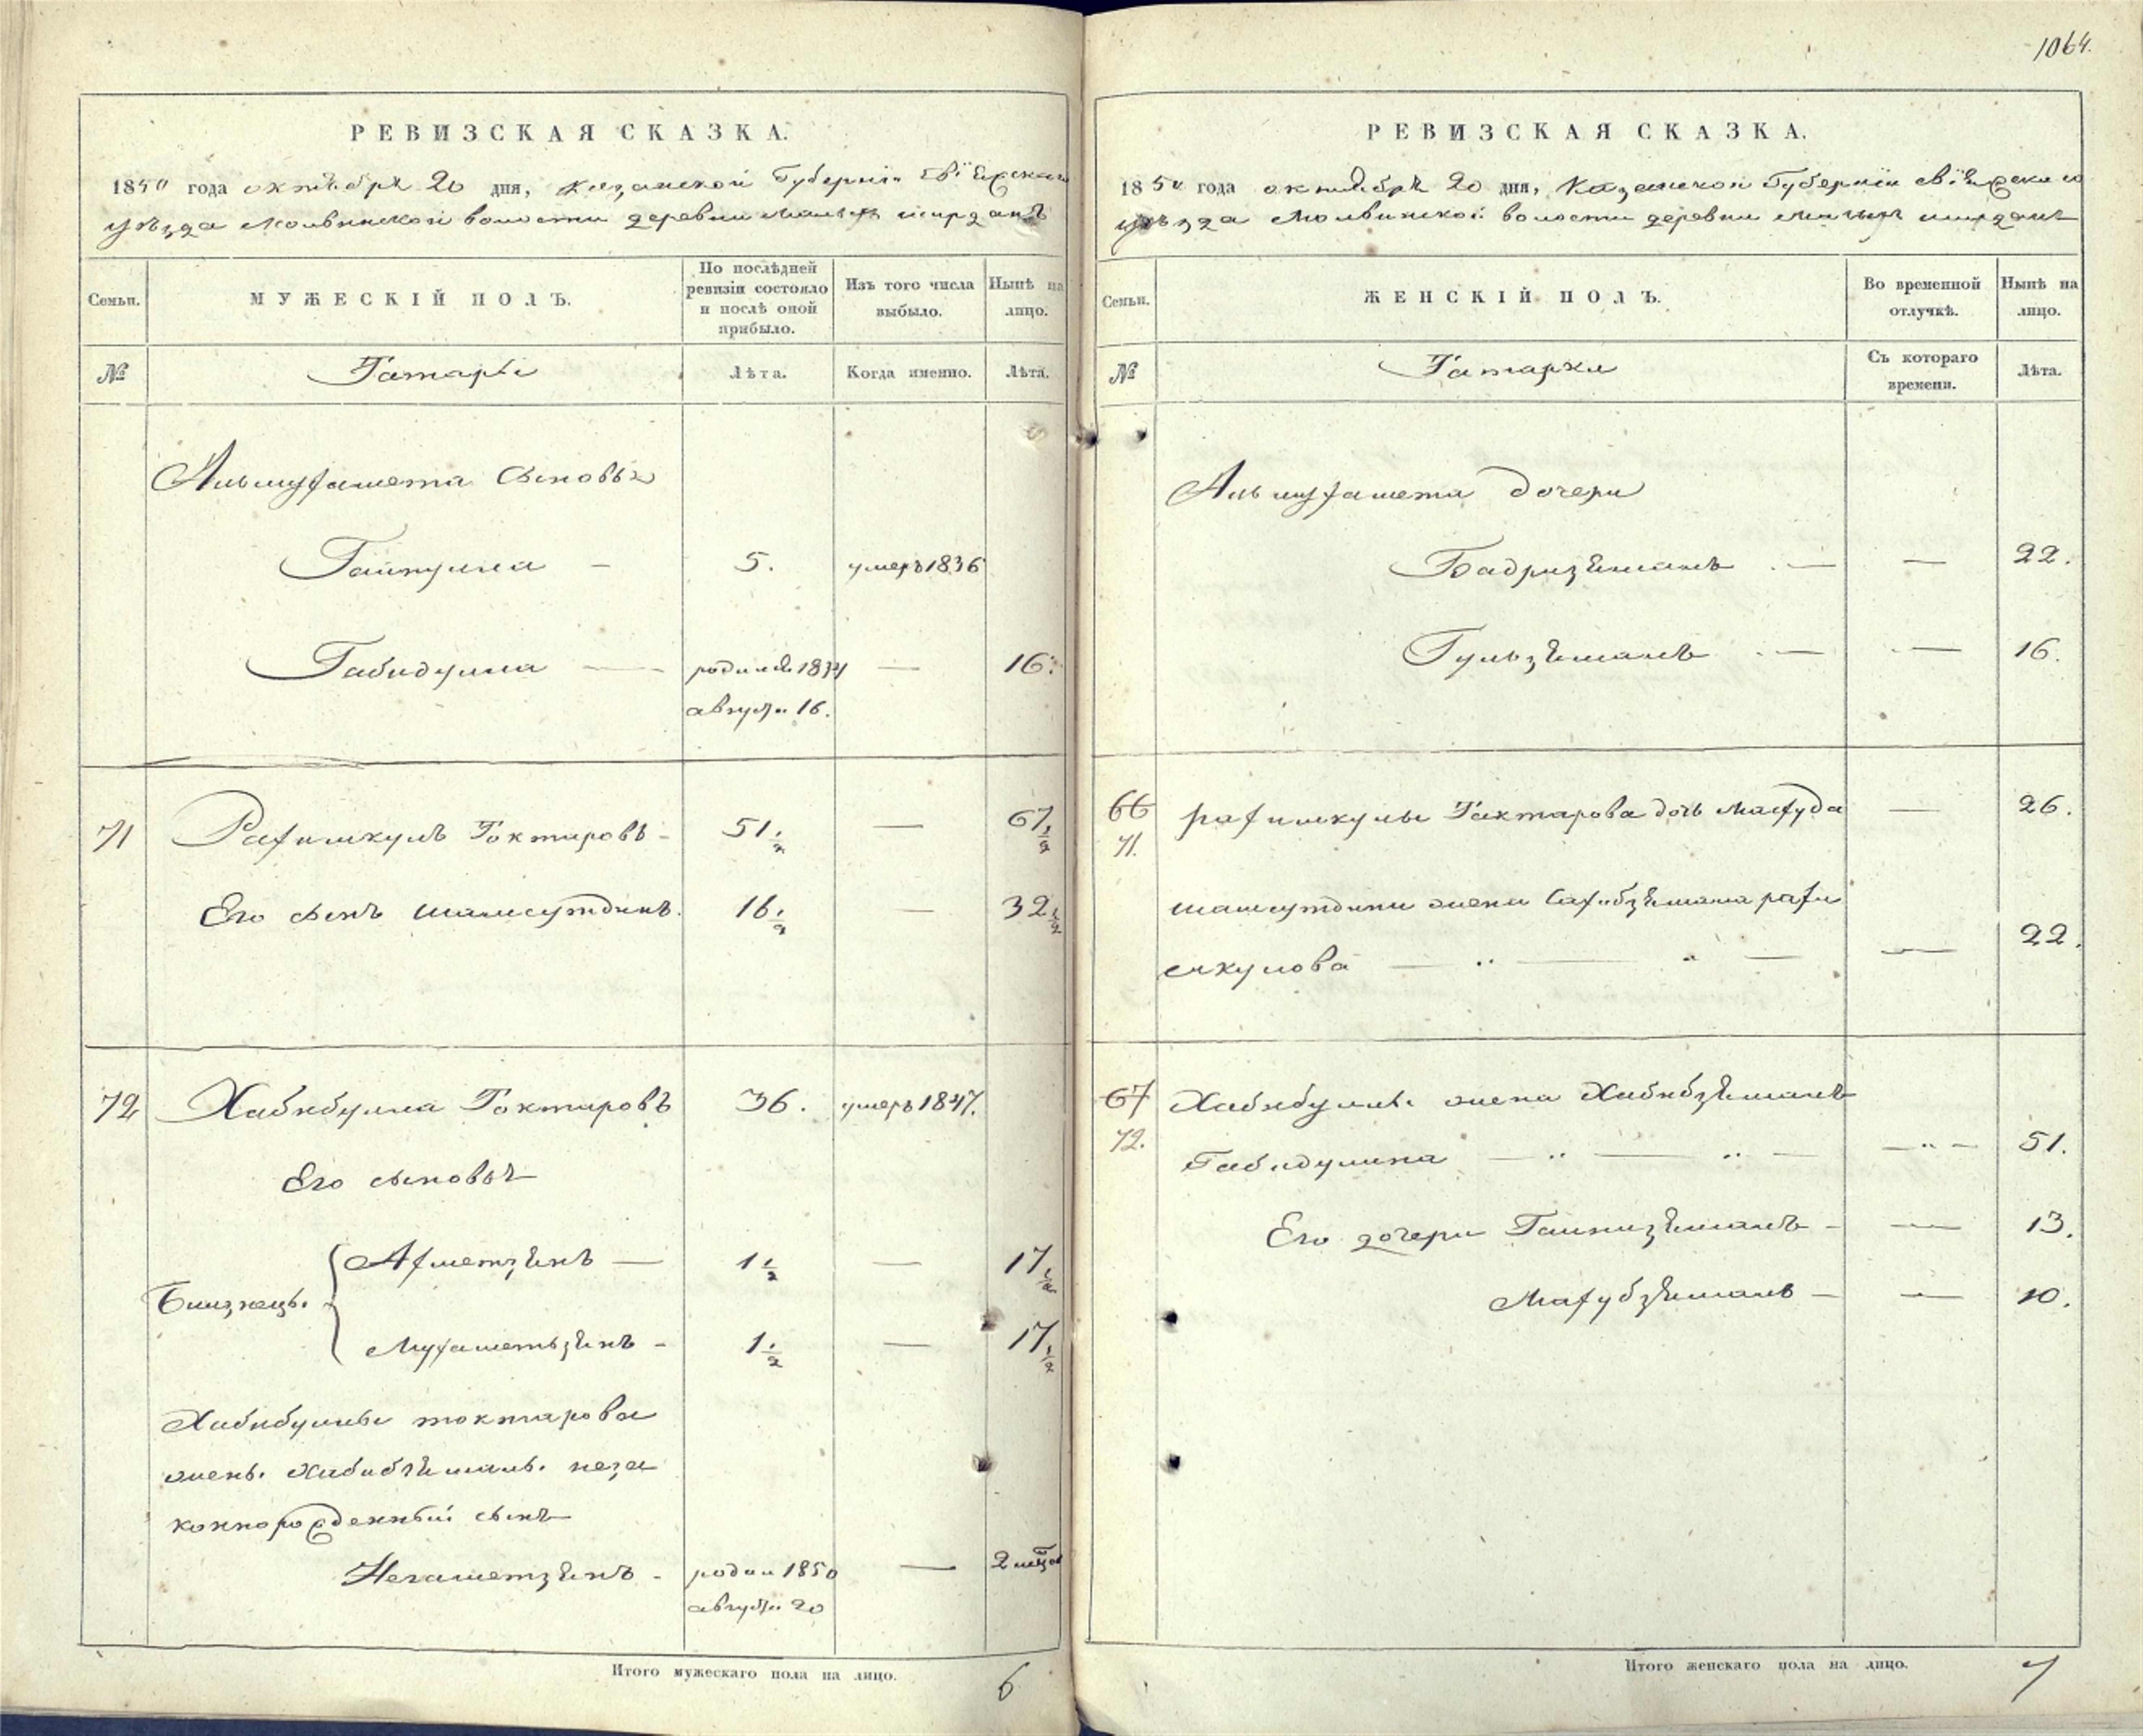 1064.
РЕВИЗСКАЯ СКАЗКА.
1850 года октября 20 дня, Казанской Губернiи Свiяжскаго
уѣзда Молвинской волости деревни Малыхъ ширданъ
Семьи.
МУЖЕСКІЙ ПОЛЪ.
По послѣдней ревизіи состояло и послѣ оной прибыло.
Изъ того числа выбыло.
Нынѣ на лицо.
№
Татары
Лѣта.
Когда именно.
Лѣта.
Альмухамета сыновья
Гайнулла — 5. умеръ 1836
Габидулла — родился 1834 — 16.
августа 16.
71 Рахимкулъ Токтаровъ - 51 1/2 — 67 1/2
Его сынъ Шамсутдинъ. 16 1/2 — 32 1/2
72 Хабибулла Токтаровъ 36. умеръ 1847.
Его сыновья
Близнецы.
Ахметзянъ — 1 1/2 — 17 1/2
Мухаметьзянъ - 1 1/2 — 17 1/2
Хабибуллы токтарова
жены Хабибзямалъ неза
коннорожденный сынъ
Негаметзянъ - родил 1850 — 2 мѣся
августа 20
Итого мужескаго пола на лицо. 6
РЕВИЗСКАЯ СКАЗКА.
1850 года октября 20 дня, Казанской Губернiи Свiяжскаго
уѣзда Молвинской волости деревни Малыхъ ширданъ
Семьи.
ЖЕНСКІЙ ПОЛЪ.
Во временной отлучкѣ.
Нынѣ на лицо.
№
Татарки
Съ котораго времени.
Лѣта.
Альмухамета дочери
Бадризямалъ — — 22.
Гульзямалъ — — 16.
66 рахимкулы Тактарова дочь Махуда — 26.
71.
шамсутдина жена Сахибзямала рахи
мкулова — — 22.
67 Хабибуллы жена Хабибзямалъ
72. Габидуллина — — 51.
Его дочери Гайнизямалъ - — 13.
Махубзямалъ — — 10.
Итого женскаго пола на лицо. 7